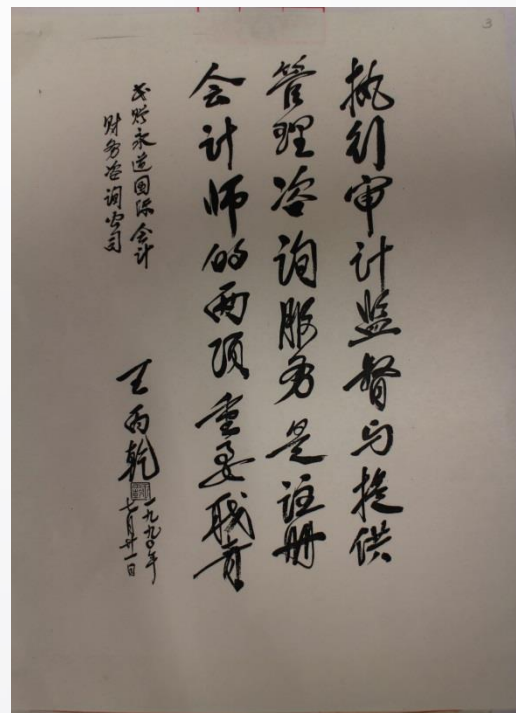 执行审计监督与提供
管理咨询服务是注册
会计师的两项重要职责
永道国际会计
财务咨询公司
王丙乾
一九九〇年
七月廿一日
3